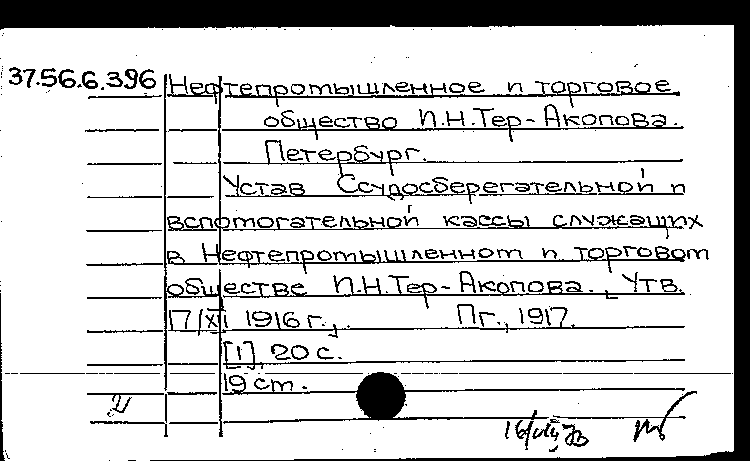 37.56.6.396 Нефтепромышленное и торговое
общество И.Н.Тер-Акопова.
Петербург.
Устав Ссудосберегательной и
вспомогательной кассы служащих
в Нефтепромышленном и торговом
обществе И.Н.Тер-Акопова., Утв.
17/XI 1916 г., Пг., 1917.
[1], 20 с.
19 ст.
2